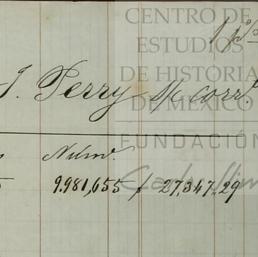 CENTRO DE
ESTUDIOS
DE HISTORIA
DE MÉXICO
FUNDACIÓN
J. Perry McCorr.
Núm.
9.981,655 $ 27,347.29